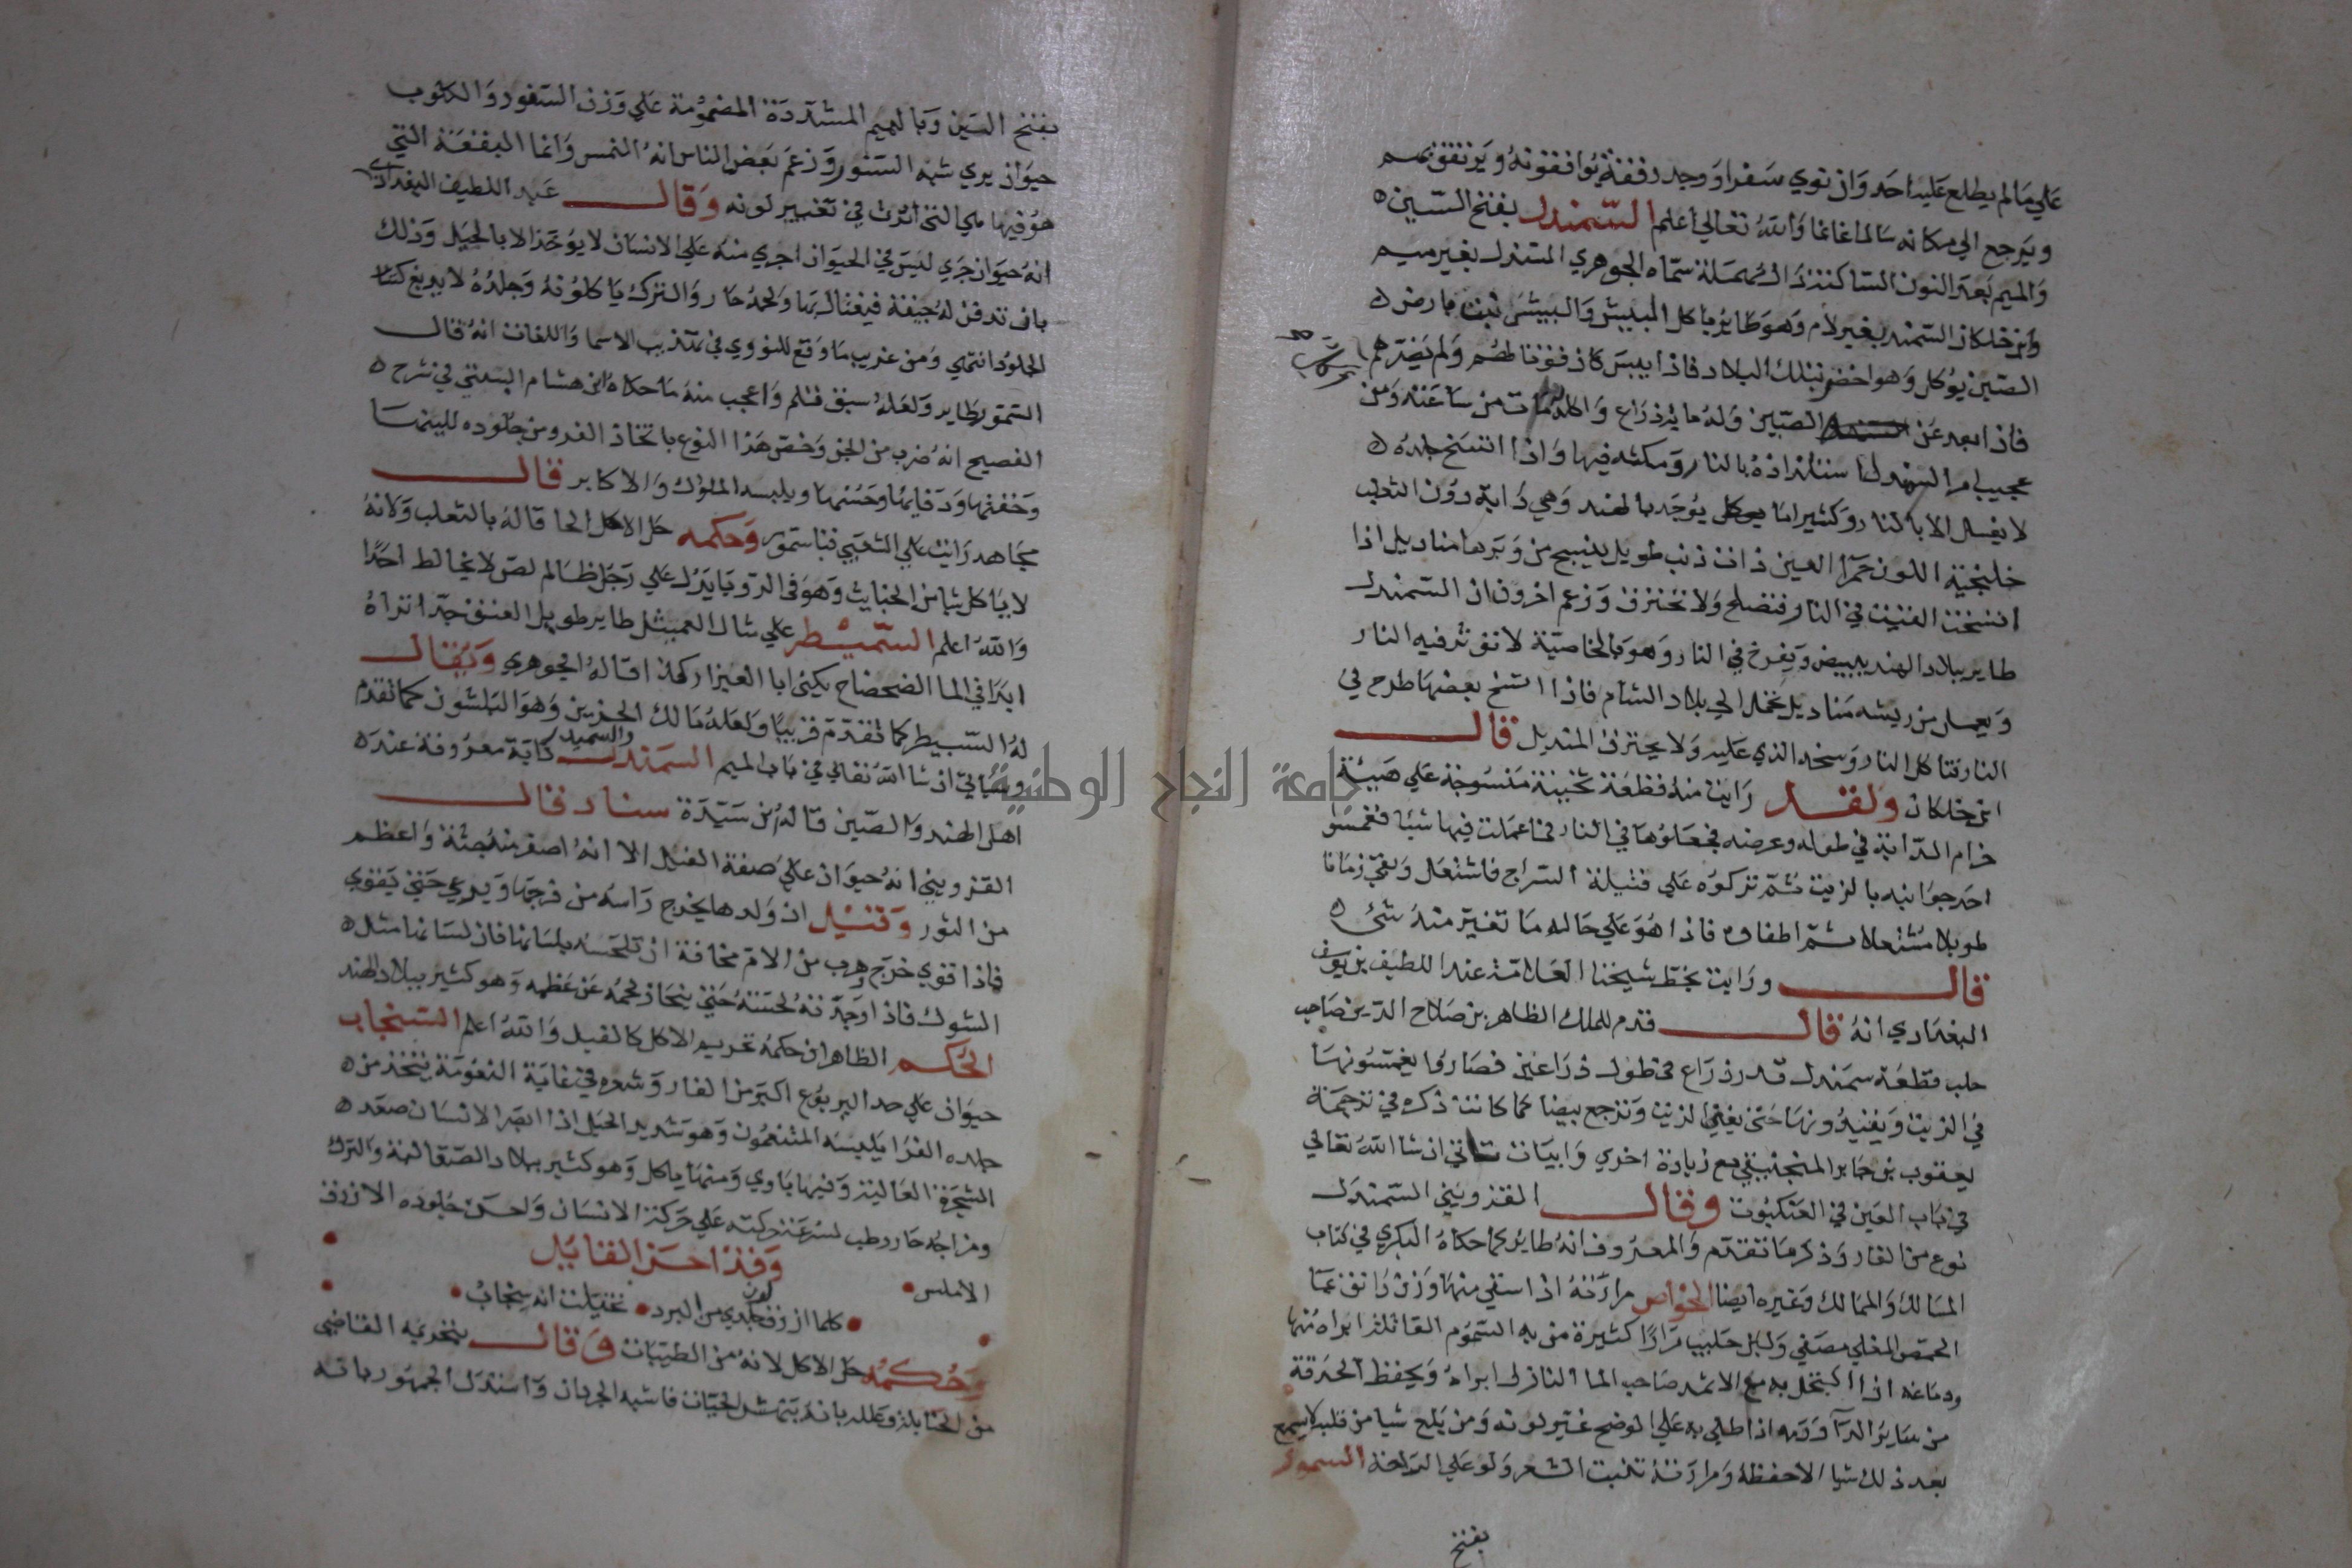 علي مالم يطلع عليه احد وان نوي سفرا او وجد رفقة يوافقونه ويرتفق بهم
ويرجع الي مكانه سالما غانما والله تعالي اعلم السمندل بفتح السين
والميم بعد النون الساكنة دال مهملة سماه الجوهري السندل بغير ميم
وابن خلكان السمند بغير لام وهو طاير ياكل البيش والبيش نبت بارض
الصين يوكل وهو اخضر بتلك البلاد فاذا يبس كان قوتا لهم ولم يضرهم
فاذا بعد عن الصين وله ماية ذراع واكله مات من ساعته ومن
عجيب امر السمندل استلذاذه بالنار ومكثه فيها واذا اتسخ جلده
لا يغسل الا بالنار وكثيرا ما يوجد بالهند وهي دابة دون الثعلب
خلنجية اللون حمرا العين ذات ذنب طويل ينسج من وبرها مناديل اذا
اتسخت القيت في النار فتصلح ولا تحترق وزعم اخرون ان السمندل
طاير ببلاد الهند يبيض ويفرخ في النار وهو بالخاصية لا تؤثر فيه النار
ويعمل من ريشه مناديل تحمل الي بلاد الشام فاذا اتسخ بعضها طرح في
النار فتاكل النار وسخه الذي عليه ولا يحترق المنديل قال
ابن خلكان ولقد رايت منه قطعة ثخينة منسوجة علي هيئة
حزام الدابة في طوله وعرضه فجعلوها في النار فما عملت فيها شيا فغمسوا
احد جوانبه بالزيت ثم تركوه علي فتيلة السراج فاشتعل وبقي زمانا
طويلا مشتعلا ثم اطفاوه فاذا هو علي حاله ما تغير منه شئ
قال ورايت بخط شيخنا العلامة عبد اللطيف بن يوسف
البغدادي انه قال قدم للملك الظاهر بن صلاح الدين صاحب
حلب قطعة سمندل قدر ذراع في طول ذراعين فصاروا يغمسونها
في الزيت ويقيدونها حتى يفني الزيت وترجع بيضا كما كانت ذكره في ترجمة
يعقوب بن جابر المنجنيقي مع زيادة اخري وابيات تاتي ان شا الله تعالي
في باب العين في العنكبوت وقال القزويني السمندل
نوع من الفار وذكر ما تقدم والمعروف انه طاير كما حكاه البكري في كتاب
المسالك والممالك وغيره ايضا الخواص مرارته اذا سقي منها وزن دانق بما
الحمص المغلي مصفي ولبن حليب مرارا كثيرة من به السموم القاتلة ابراه منها
ودماغه اذا اكتحل به مع الاثمد صاحب الما النازل ابراه ويحفظ الحدقة
من ساير الداء ودمه اذا طلي به علي الوضح غير لونه ومن بلع شيا من قلبه لا يسمع
بعد ذلك شيا الا حفظه ومرارته تنبت الشعر ولو علي الراحة السمور
بفتح
بفتح السين وبالميم المشددة المضمومة علي وزن السفود والكلوب
حيوان بري شبه السنور وزعم بعض الناس انه النمس وانما البقعة التي
هو فيها هي التي اثرت في تغيير لونه وقال عبد اللطيف البغدادي
انه حيوان جري ليس في الحيوان اجري منه علي الانسان لا يوخذ الا بالحيل وذلك
بان تدفن له جيفة فيغتال بها ولحمه حار والترك ياكلونه وجلده لا يدبغ كساير
الجلود انتهي ومن غريب ما وقع للنووي في تهذيب الاسما واللغات انه قال
السمور طاير ولعله سبق قلم واعجب منه ما حكاه ابن هشام البستي في شرح
الفصيح انه ضرب من الجن وخص هذا النوع باتخاذ الفرو من جلوده للينها
وخفتها ودفايها وحسنها ويلبسه الملوك والاكابر قال
مجاهد رايت علي الشعبي قبا سمور وحكمه حل الاكل الحاقا له بالثعلب ولانه
لا ياكل شيا من الخبايث وهو في الرويا يدل علي رجل ظالم لص لا يخالط احدا
والله اعلم السميطر علي مثال العميثل طاير طويل العنق جدا تراه
ابدا في الما الضحضاح يكني ابا العيزار كذا قاله الجوهري ويقال
له السبيطر كما تقدم قريبا ولعله مالك الحزين وهو البلشون كما تقدم
وسياتي ان شا الله تعالي في باب الميم السمندر والسميدر دابة معروفة عند
اهل الهند والصين قاله ابن سيدة سناد قال
القزويني انه حيوان علي صفة الفيل الا انه اصغر منه جثة واعظم
من الثور وقيل ان ولدها يخرج راسه من فرجها ويرعي حتي يقوي
فاذا قوي خرج وهرب من الام مخافة ان تلحسه بلسانها فان لسانها مثل
الشوك فاذا وجدته لحسته حتي ينحاز لحمه عن عظمه وهو كثير ببلاد الهند
الحكم الظاهر ان حكمه تحريم الاكل كالفيل والله اعلم السنجاب
حيوان علي حد اليربوع اكبر من الفار وشعره في غاية النعومة يتخذ من
جلده الفرا يلبسه المتنعمون وهو شديد الحيل اذا ابصر الانسان صعد
الشجرة العالية وفيها ياوي ومنها ياكل وهو كثير ببلاد الصقالبة والترك
ومزاجه حار رطب لسرعة حركته علي حركة الانسان واحسن جلوده الازرق
الاملس وقد احسن القايل
كلما ازرق لون جلدي من البرد تخيلت انه سنجاب
وحكمه حل الاكل لانه من الطيبات وقال بتحريمه القاضي
من الحنابلة وعلله بانه ينهش الحيات فاشبه الجرذان واستدل الجمهور بانه
جامعة النجاح الوطنية